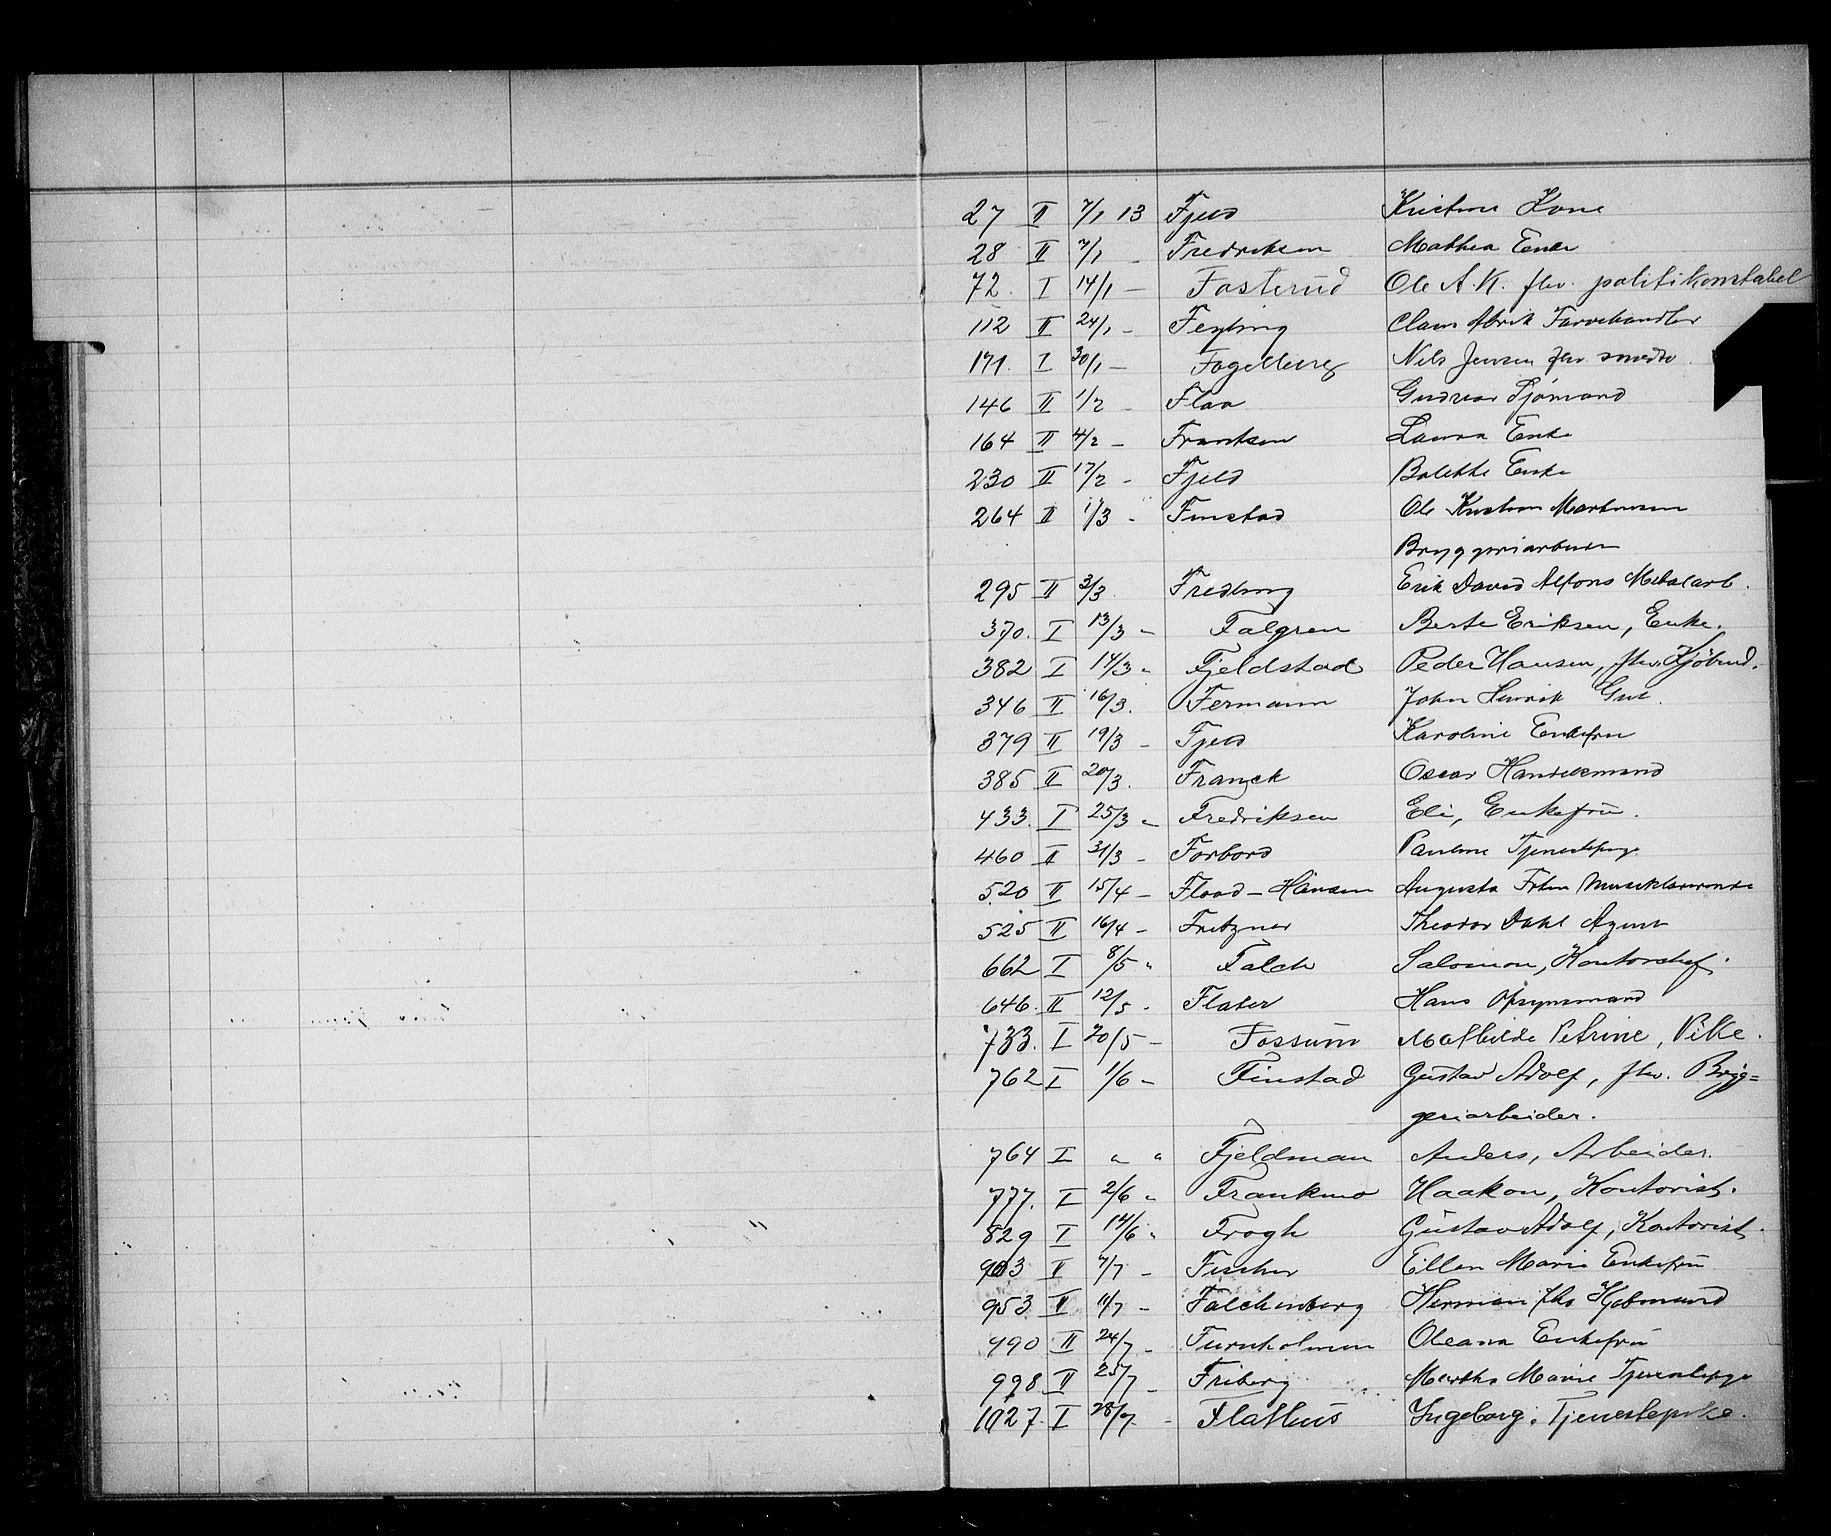 27 II 7/1 13 Fjeld Kristine Kone
28 II 7/1 - Fredriksen Mathea Enke
72. I 14/1 - Fosterud Ole A. K. fhv. politikonstabel
112 II 24/1 - Feyling Claus Farvehandler
171. I 30/1 - Fogelberg Nils Jensen fhv.
146 II 1/2 - Flaa Gudvar Sjømand
164 II 4/2 - Frantsen Laura Enke
230 II 17/2 - Fjeld Bolette Enke
264 II 1/3 - Finstad Ole Kristian Martinsen
Bryggeriarbeider
295 II 3/3 Fredberg Erik David Alfons Metalarb.
370. I 13/3 - Falgren Berte Eriksen, Enke.
382 I 14/3 " Fjeldstad Peder Hansen, fhv. Kjøbmd.
346 II 16/3. Fermann John Henrik Gut.
379 II 19/3 - Fjeld Karoline Enkefru
385 II 20/3. Franck Oscar Handelsmand
433. I 25/3 " Fredriksen Eli, Enkefru.
460 II 31/3 - Forbord Pauline Tjenestepige
520 II 15/4 - Flood-Hansen Augusta Frkn Musiklærerinde
525 II 16/4 - Fritzner Theodor Dahl Agent
662 I 8/5 " Falch Salomon, Kontorchef.
646. II 12/5 - Flater Hans Opsynsmand
733. I 20/5 - Fossum Mathilde Petrine, Pike.
762 I 1/6 - Finstad Gustav Adolf, fhv. Bryg=
geriarbeider.
764 I " " Fjeldman Anders, Arbeider.
777. I 2/6 " Frankmo Haakon, Kontorist.
829 I 14/6 " Frogh Gustav Adolf, Kontorist.
903 II 7/7 - Fischer Ellen Marie Enkefru
953 II 11/7 - Falchenberg Herman fhv Kjøbmand
990 II 24/7 - Furuholmen Oleana Enkefru
998 II 25/7 - Friberg Martha Marie Tjenestepige
1027. I 28/7 - Flathus Ingeborg, Tjenestepike.